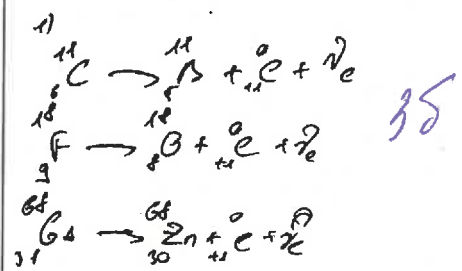 1)
¹¹₆C → ¹¹₅B + ⁰₊₁e + ν̃ₑ
¹⁸₉F → ¹⁸₈O + ⁰₊₁e + ν̃ₑ
⁶⁸₃₁Ga → ⁶⁸₃₀Zn + ⁰₊₁e + ν̃ₑ
3б